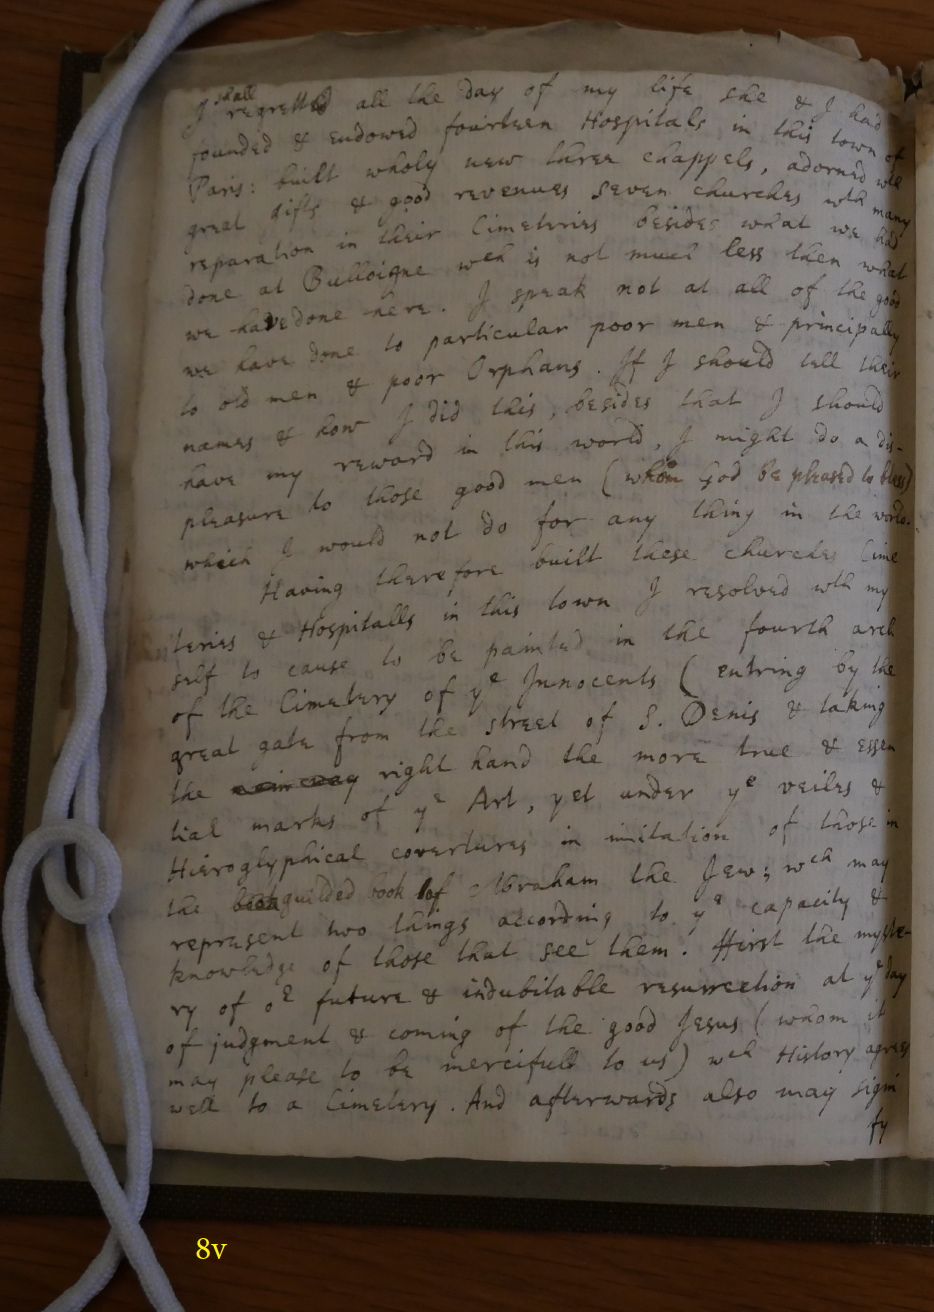 I shall regretted all the day of my life she & I had
founded & endowed fourteen Hospitals in this town of
Paris: built wholy new three chappels, adorned wth
great gifts & good revenues seven churches wth many
reparation in their Cimeteries besides what we had
done at Bulloigne wch is not much less then what
we have done here. I speak not at all of the good
we have done to particular poor men & principally
to old men & poor Orphans. If I should tell their
names & how I did this, besides that I should
have my reward in this world, I might do a dis-
pleasure to those good men (whom God be pleased to bless)
which I would not do for any thing in the world.
Having therefore built these churches Cime
teries & Hospitalls in this town I resolved wth my
self to cause to be painted in the fourth arch
of the Cimetery of ye Innocents (entring by the
great gate from the street of S. Denis & taking
the right hand the more true & essen
tial marks of ye Art, yet under ye veiles &
Hieroglyphical covertures in imitation of those in
the book guilded book of Abraham the Jew; wch may
represent two things according to ye capacity &
knowledge of those that see them. ffirst the myste-
ry of or future & indubitable resurrection at ye day
of judgment & coming of the good Jesus (whom it
may please to be mercifull to us) wch History agrees
well to a Cimetery. And afterwards also may signi
fy
8v